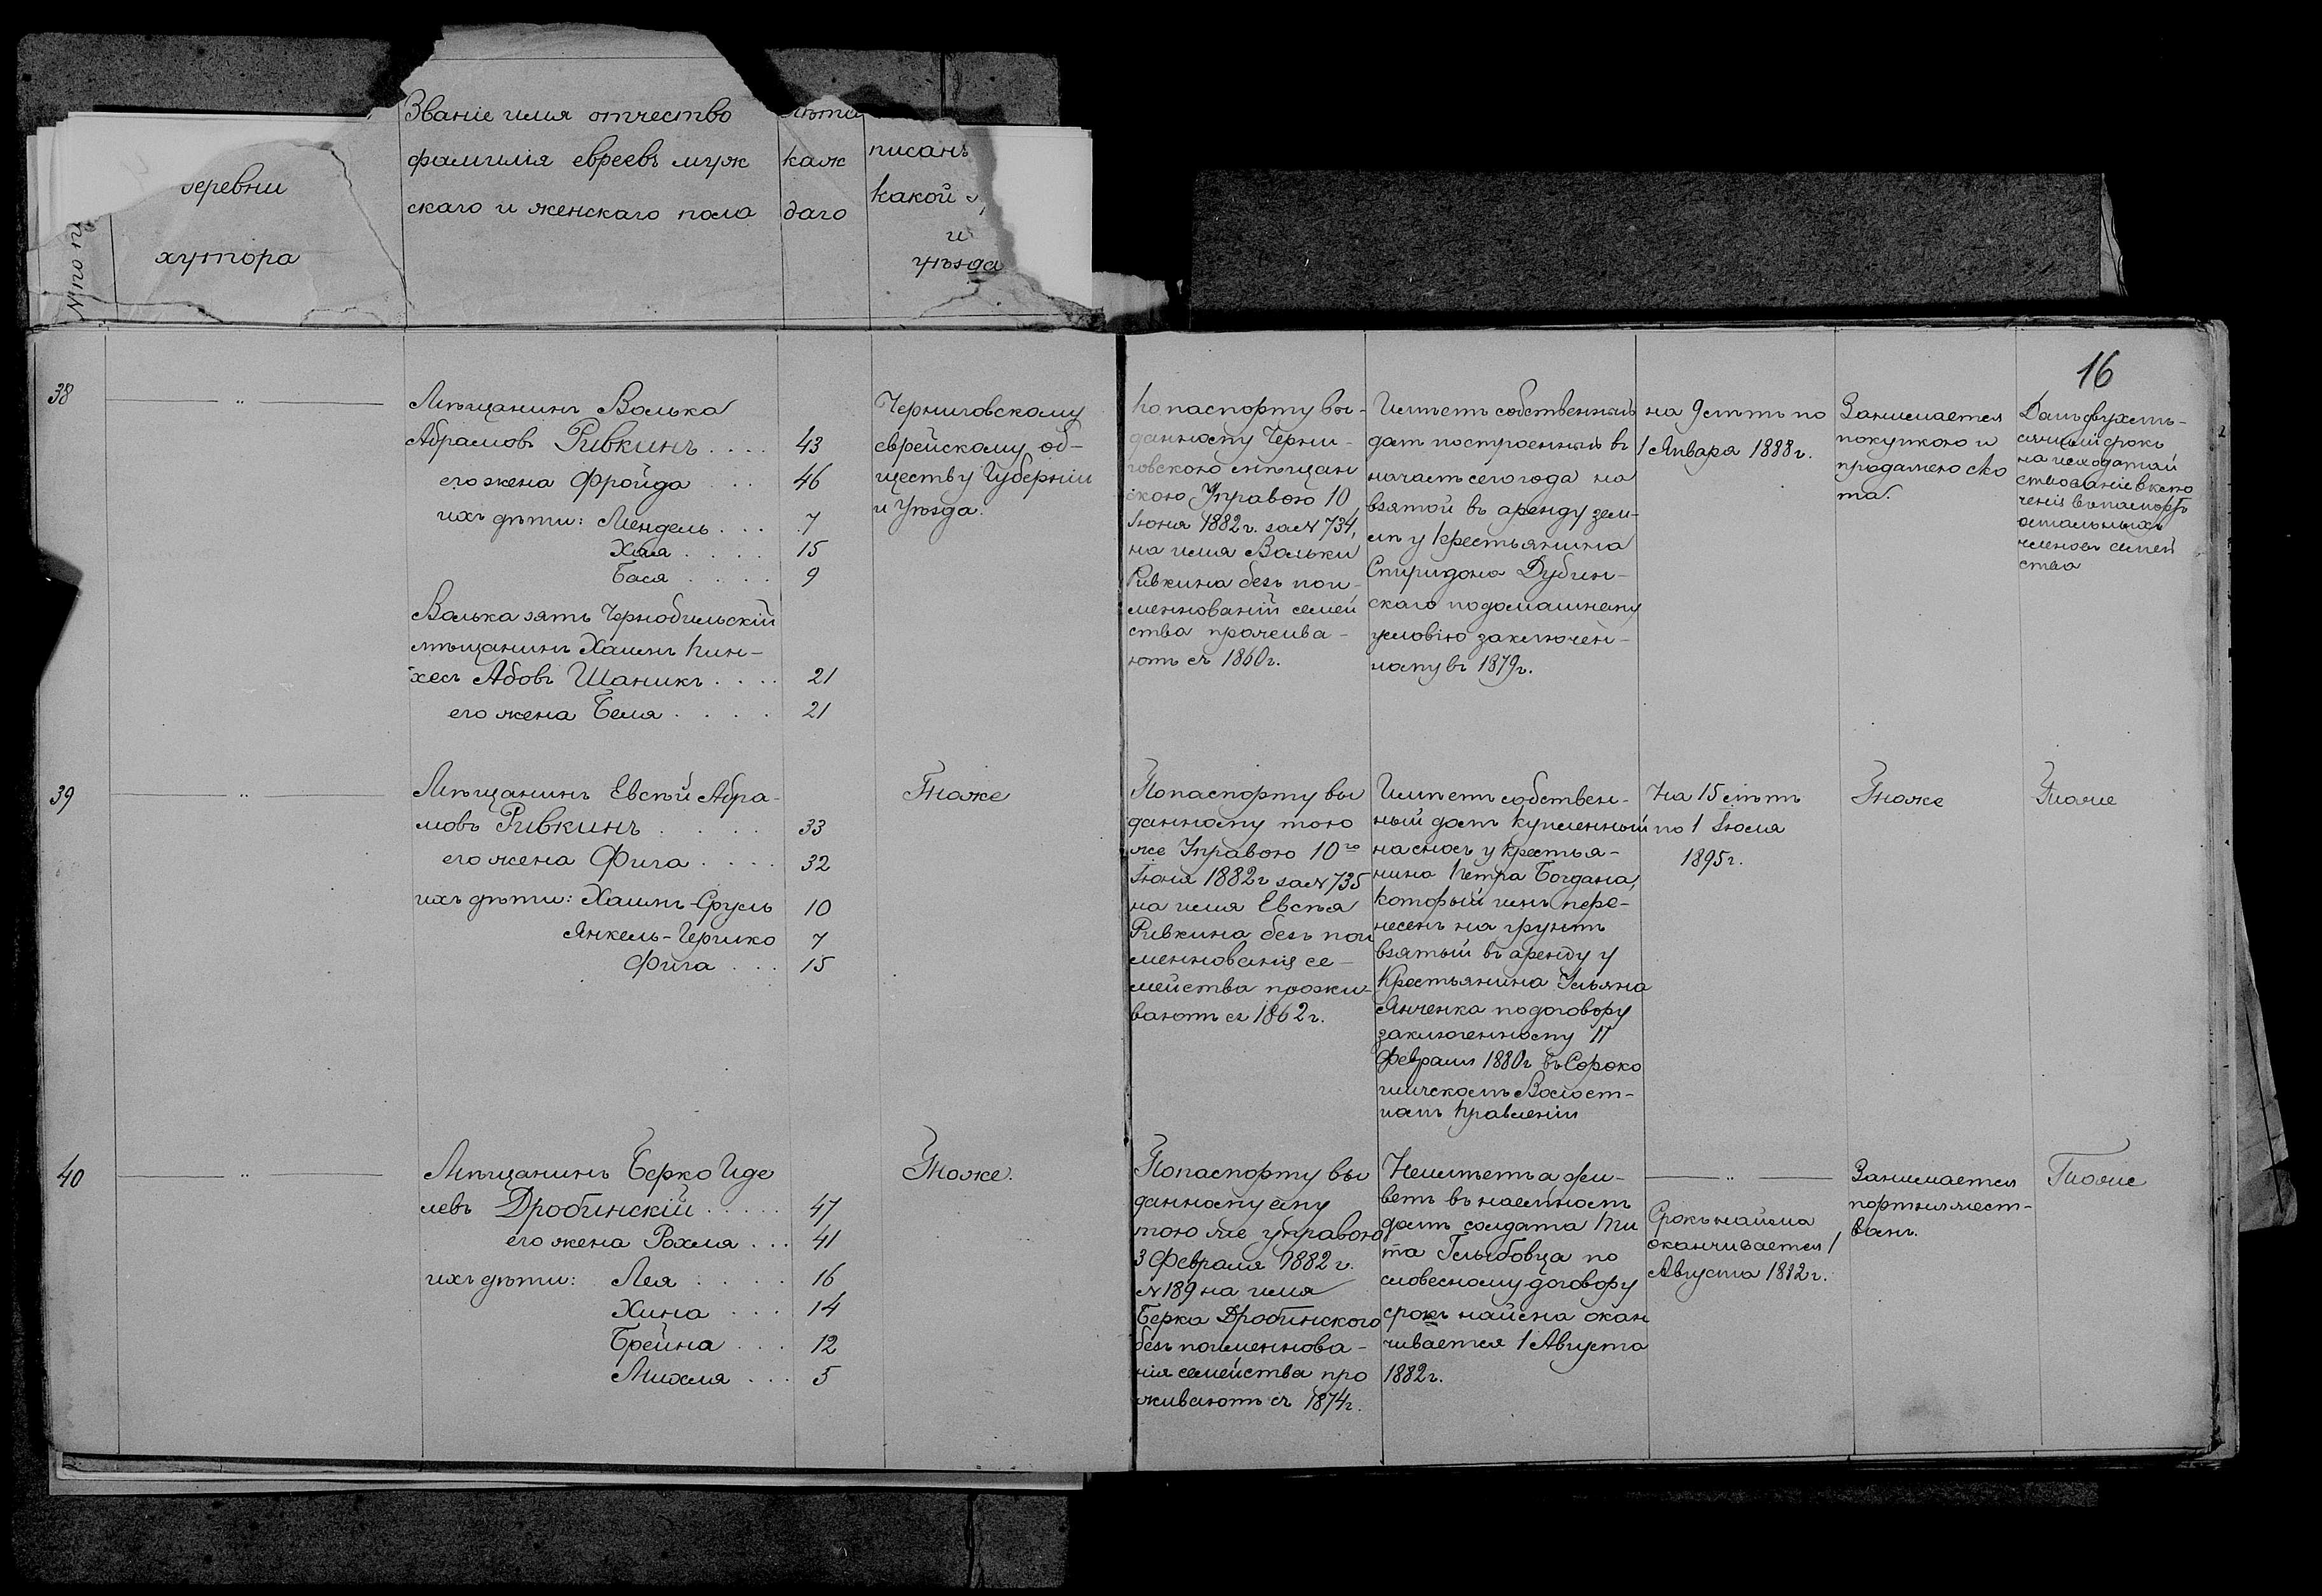 Званіе имя отчество
фамилія евреевъ муж
скаго и женскаго пола
каж
даго
писанъ
какой
и
уѣзда
деревни
хутора
№ по п
16
38
Мѣщанинъ Волька
Абрамовъ Ривкинъ .... 43
его жена Фройда ... 46
ихъ дѣти: Мендель ... 7
Хая .... 15
Бася .... 9
Волька зять Чернобыльскій
мѣщанинъ Хаимъ Пин-
хесъ Абовъ Шаникъ .... 21
его жена Беля .... 21
Черниговскому
еврейскому об-
ществу Губерніи
и Уѣзда.
По паспорту вы-
данному Черни-
говскою мѣщан
скою Управою 10
Іюня 1882 г. за № 734,
на имя Вольки
Ривкина безъ пои-
менованій семей
ства прожива-
ютъ съ 1860 г.
Имѣетъ собственный
домъ построенный въ
началѣ сего года на
взятой въ аренду зем-
лѣ у крестьянина
Спиридона Дубин-
скаго по домашнему
условію заключен-
ному въ 1879 г.
на 9 лѣтъ по
1 Января 1888 г.
Занимается
покупкою и
продажею ско
та.
Данъ двухмѣ-
сячный срокъ
на исходатай
ствованіе вклю
ченія въ паспортъ
остальныхъ
членовъ семей
ства
39
Мѣщанинъ Евсѣй Абра-
мовъ Ривкинъ .... 33
его жена Фига .... 32
ихъ дѣти: Хаимъ-Сруль 10
Янкель-Гершко 7
Фига ... 15
Тоже
По паспорту вы
данному тою
же Управою 10го
Іюня 1882 г за № 735
на имя Евсѣя
Ривкина безъ пои
менованія се-
мейства прожи-
ваютъ съ 1862 г.
Имѣетъ собствен-
ный домъ купленный
на сносъ у крестья-
нина Петра Богдана,
который имъ пере-
несенъ на грунтъ
взятый въ аренду у
Крестьянина Ульяна
Янченка по договору
заключенному 17
Февраля 1880 г въ Сороко
шичскомъ Волост-
номъ Правленіи
На 15 лѣтъ
по 1 Іюля
1895 г.
Тоже
Тоже
40
Мѣщанинъ Берко Иде
левъ Дробинскій ..... 47
его жена Рохля ... 41
ихъ дѣти: Лея .... 16
Хина ... 14
Брейна ... 12
Михля ... 5
Тоже.
По паспорту вы
данному ему
тою же управою
3 Февраля 1882 г.
№ 189 на имя
Берка Дробинского
безъ поименнова-
нія семейства про
живаютъ съ 1874 г.
Неимѣетъ а жи-
ветъ въ наемномъ
домѣ солдата Ти
та Глыбовца по
словесному договору
срокъ найма окан
чивается 1 Августа
1882 г.
Срокъ найма
оканчивается 1
Августа 1882 г.
Занимается
портняжест-
вомъ.
Тоже